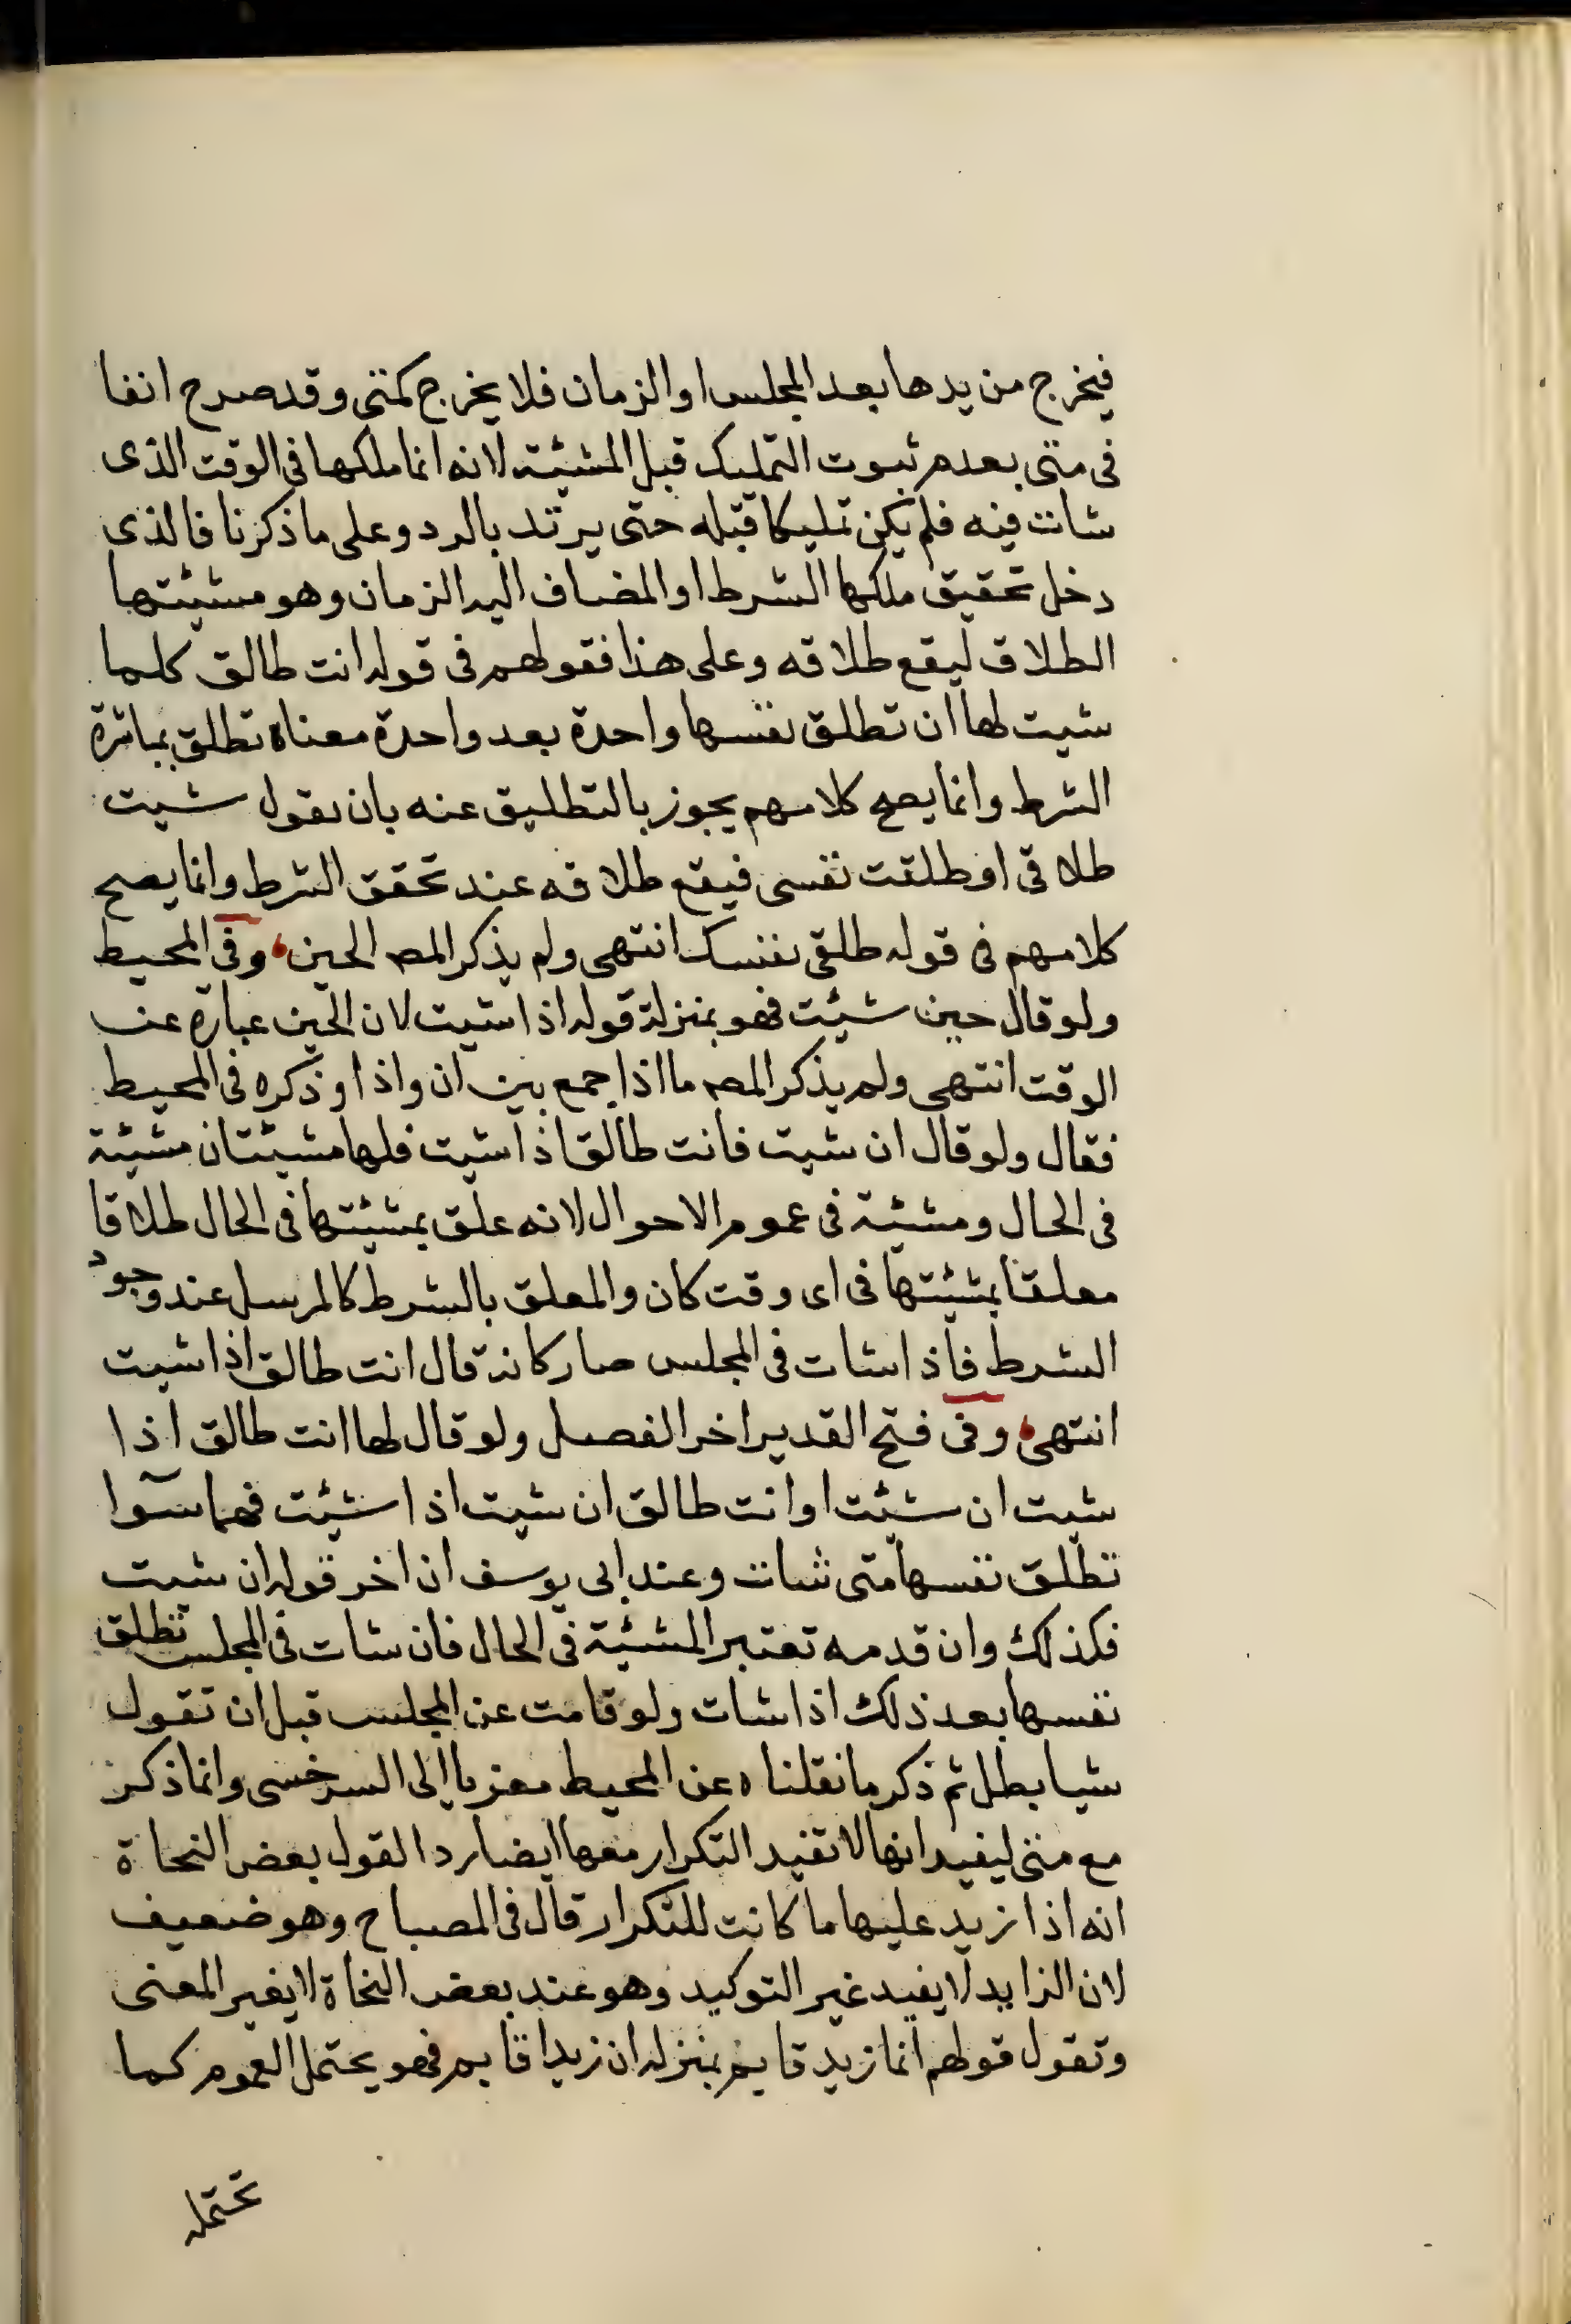 فيخرج من يدها بعد المجلس او الزمان فلا يخرج كمتى وقد صرح انفا
فى متى بعدم ثبوت التمليك قبل المشيئة لانه انما ملكها فى الوقت الذى
شات فيه فلم يكن تمليكا قبله حتى يرتد بالرد وعلى ما ذكرنا فالذى
دخل تحقيق ملكها الشرط او المضاف اليه الزمان وهو مشيئتها
الطلاق ليقع طلاقه وعلى هذا فقولهم فى قوله انت طالق كلما
شيت لها ان تطلق نفسها واحدة بعد واحدة معناه تطلق بمباشرة
الشرط وانما يصح كلامهم يجوز بالتطليق عنه بان تقول شيت
طلاقى او طلقت نفسى فيقع طلاقه عند تحقق الشرط وانما يصح
كلامهم فى قوله طلقى نفسك انتهى ولم يذكر المصه الحين، وفى المحيط
ولو قال حين شيئت فهو بمنزلة قوله اذا شيت لان الحين عبارة عن
الوقت انتهى ولم يذكر المصه ما اذا جمع بين ان واذا وذكره فى المحيط
فقال ولو قال ان شيت فانت طالق اذا شيت فلها مشيئتان مشيئة
فى الحال ومشئية فى عموم الاحوال لانه علق بمشيئتها فى الحال طلاقا
معلقا بمشيئتها فى اى وقت كان والمعلق بالشرط كالمرسل عند وجود
الشرط فاذا شات فى المجلس صار كانه قال انت طالق اذا شيت
انتهى، وفى فتح القدير اخر الفصل ولو قال لها انت طالق اذا
شيت ان شيئت او انت طالق ان شيت اذا شيئت فهما سوآا
تطلق نفسها متى شات وعند ابى يوسف ان اخر قوله ان شيت
فكذلك وان قدمه تعتبر المشيئة فى الحال فان شات فى المجلس تطلق
نفسها بعد ذلك اذا شات ولو قامت عن المجلس قبل ان تقول
شيا بطل ثم ذكر ما نقلناه عن المحيط معزيا الى السرخسى وانما ذكر
مع متى ليفيد انها لا تفيد التكرار معها ايضا ردا لقول بعض النحاة
انه اذا زيد عليها ما كانت للتكرار قال فى المصباح وهو ضعيف
لان الزايد لا يفيد غير التوكيد وهو عند بعض النحاة لا يغير المعنى
وتقول قولهم انما زيد قايم بمنزله ان زيدا قايم فهو يحتمل العموم كما
تحتمله